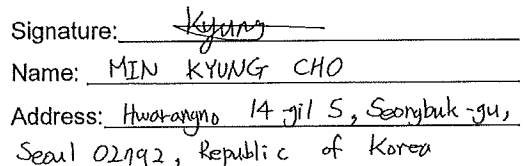 Signature: Kyung
Name: MIN KYUNG CHO
Address: Hwarangno 14-gil 5, Seongbuk-gu,
Seoul 02792, Republic of Korea